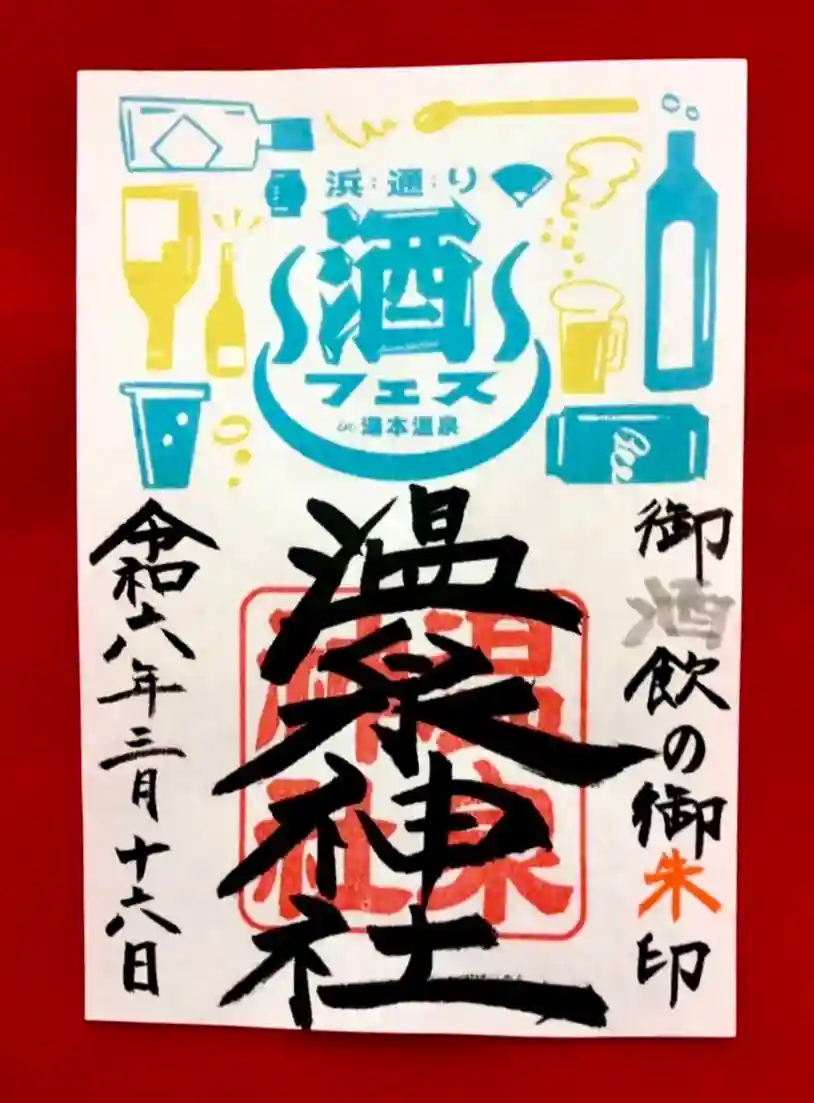 浜通り
酒
フェス
in 湯本温泉
御酒飲の御朱印
温泉神社
温泉神社
令和六年三月十六日